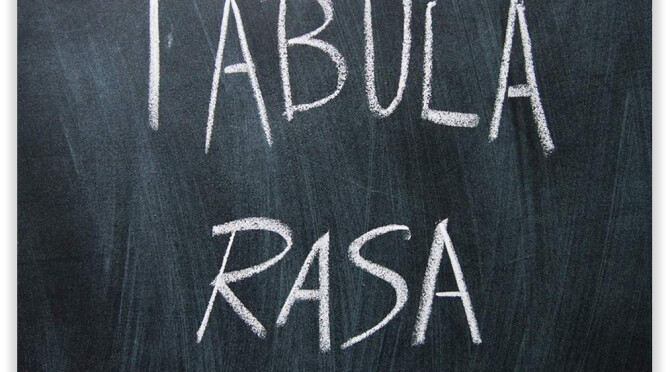 TABULA
RASA